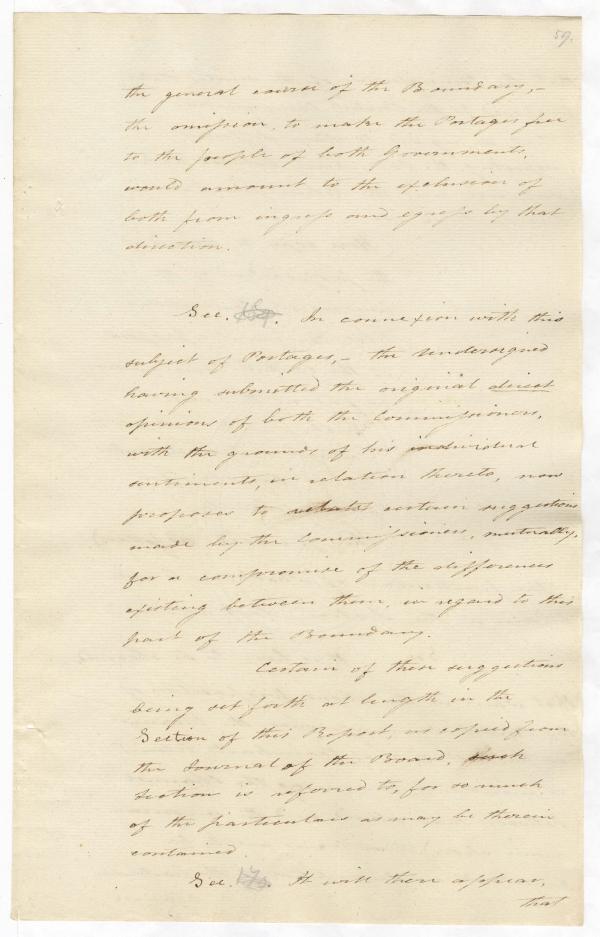 59.
the general course of the Boundary,–
the omission, to make the Portages free
to the people of both Governments,
would amount to the exclusion of
both from ingress and egress by that
direction.
Sec. In connexion with this
subject of Portages,– the Undersigned
having submitted the original direct
opinions of both the Commissioners,
with the grounds of his individual
sentiments, in relation thereto, now
proposes to certain suggestions
made by the Commissioners, mutually,
for a compromise of the differences
existing between them, in regard to this
part of the Boundary.
Certain of these suggestions
being set forth at length in the
Section of this Report, as copied from
the Journal of the Board, such
section is referred to, for so much
of the particulars as may be therein
contained.
Sec. It will there appear,
that